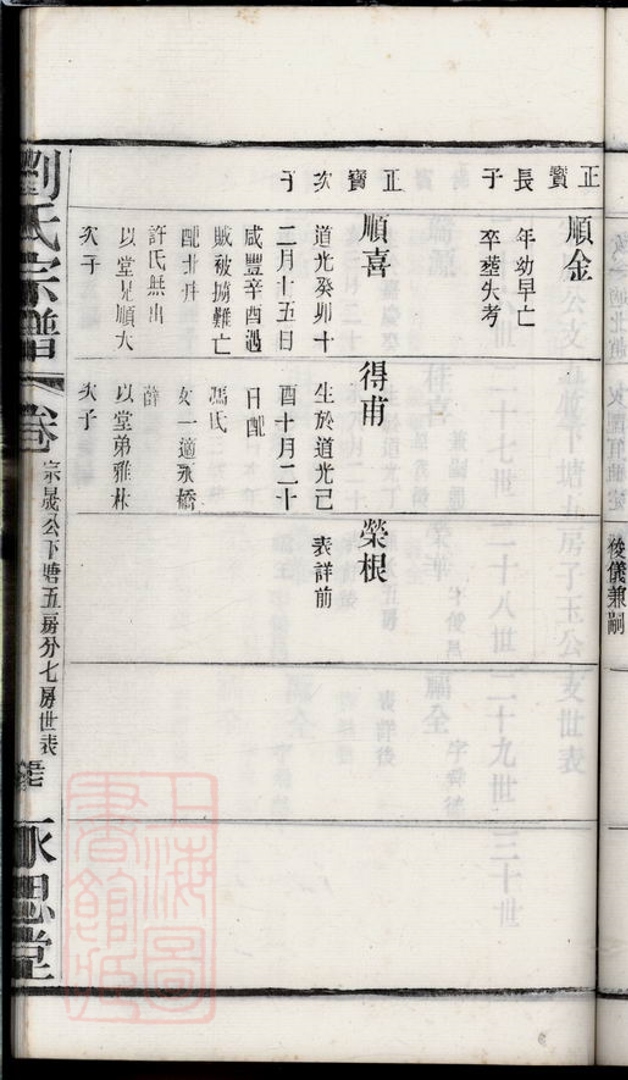 正寳長子
順金
年幼早亡
卒塟失考
正寳次子
順喜
道光癸卯十
二月十五日
咸豐辛酉遇
賊被擄難亡
配北井
許氏無出
以堂兄順大
次子
得甫
生於道光己
酉十月二十
日配
馮氏
女一適永橋
薛
以堂弟雅林
次子
榮根
表詳前
劉氏宗譜
卷
宗晟公下塘五房分七房世表
永思堂
俊儀兼嗣
上海圖書館藏